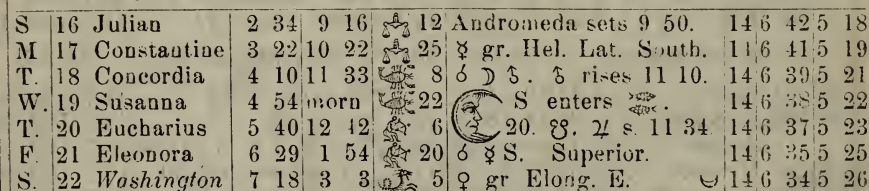 S 16 Julian 2 34 9 16 12 Andromeda sets 9 50. 14 6 42 5 18
M 17 Constantine 3 22 10 22 25 ☿ gr. Hel. Lat. South. 14 6 41 5 19
T. 18 Concordia 4 10 11 33 8 ☌ ☽ ♄. ♄ rises 11 10. 14 6 39 5 21
W. 19 Susanna 4 54 morn 22 S enters ♒. 14 6 38 5 22
T. 20 Eucharius 5 40 12 42 6 20. ☋. ♃ s. 11 34 14 6 37 5 23
F 21 Eleonora 6 29 1 54 20 ☌ ☿ S. Superior. 14 6 35 5 25
S. 22 Washington 7 18 3 3 5 ♀ gr Elong. E. 14 6 34 5 26